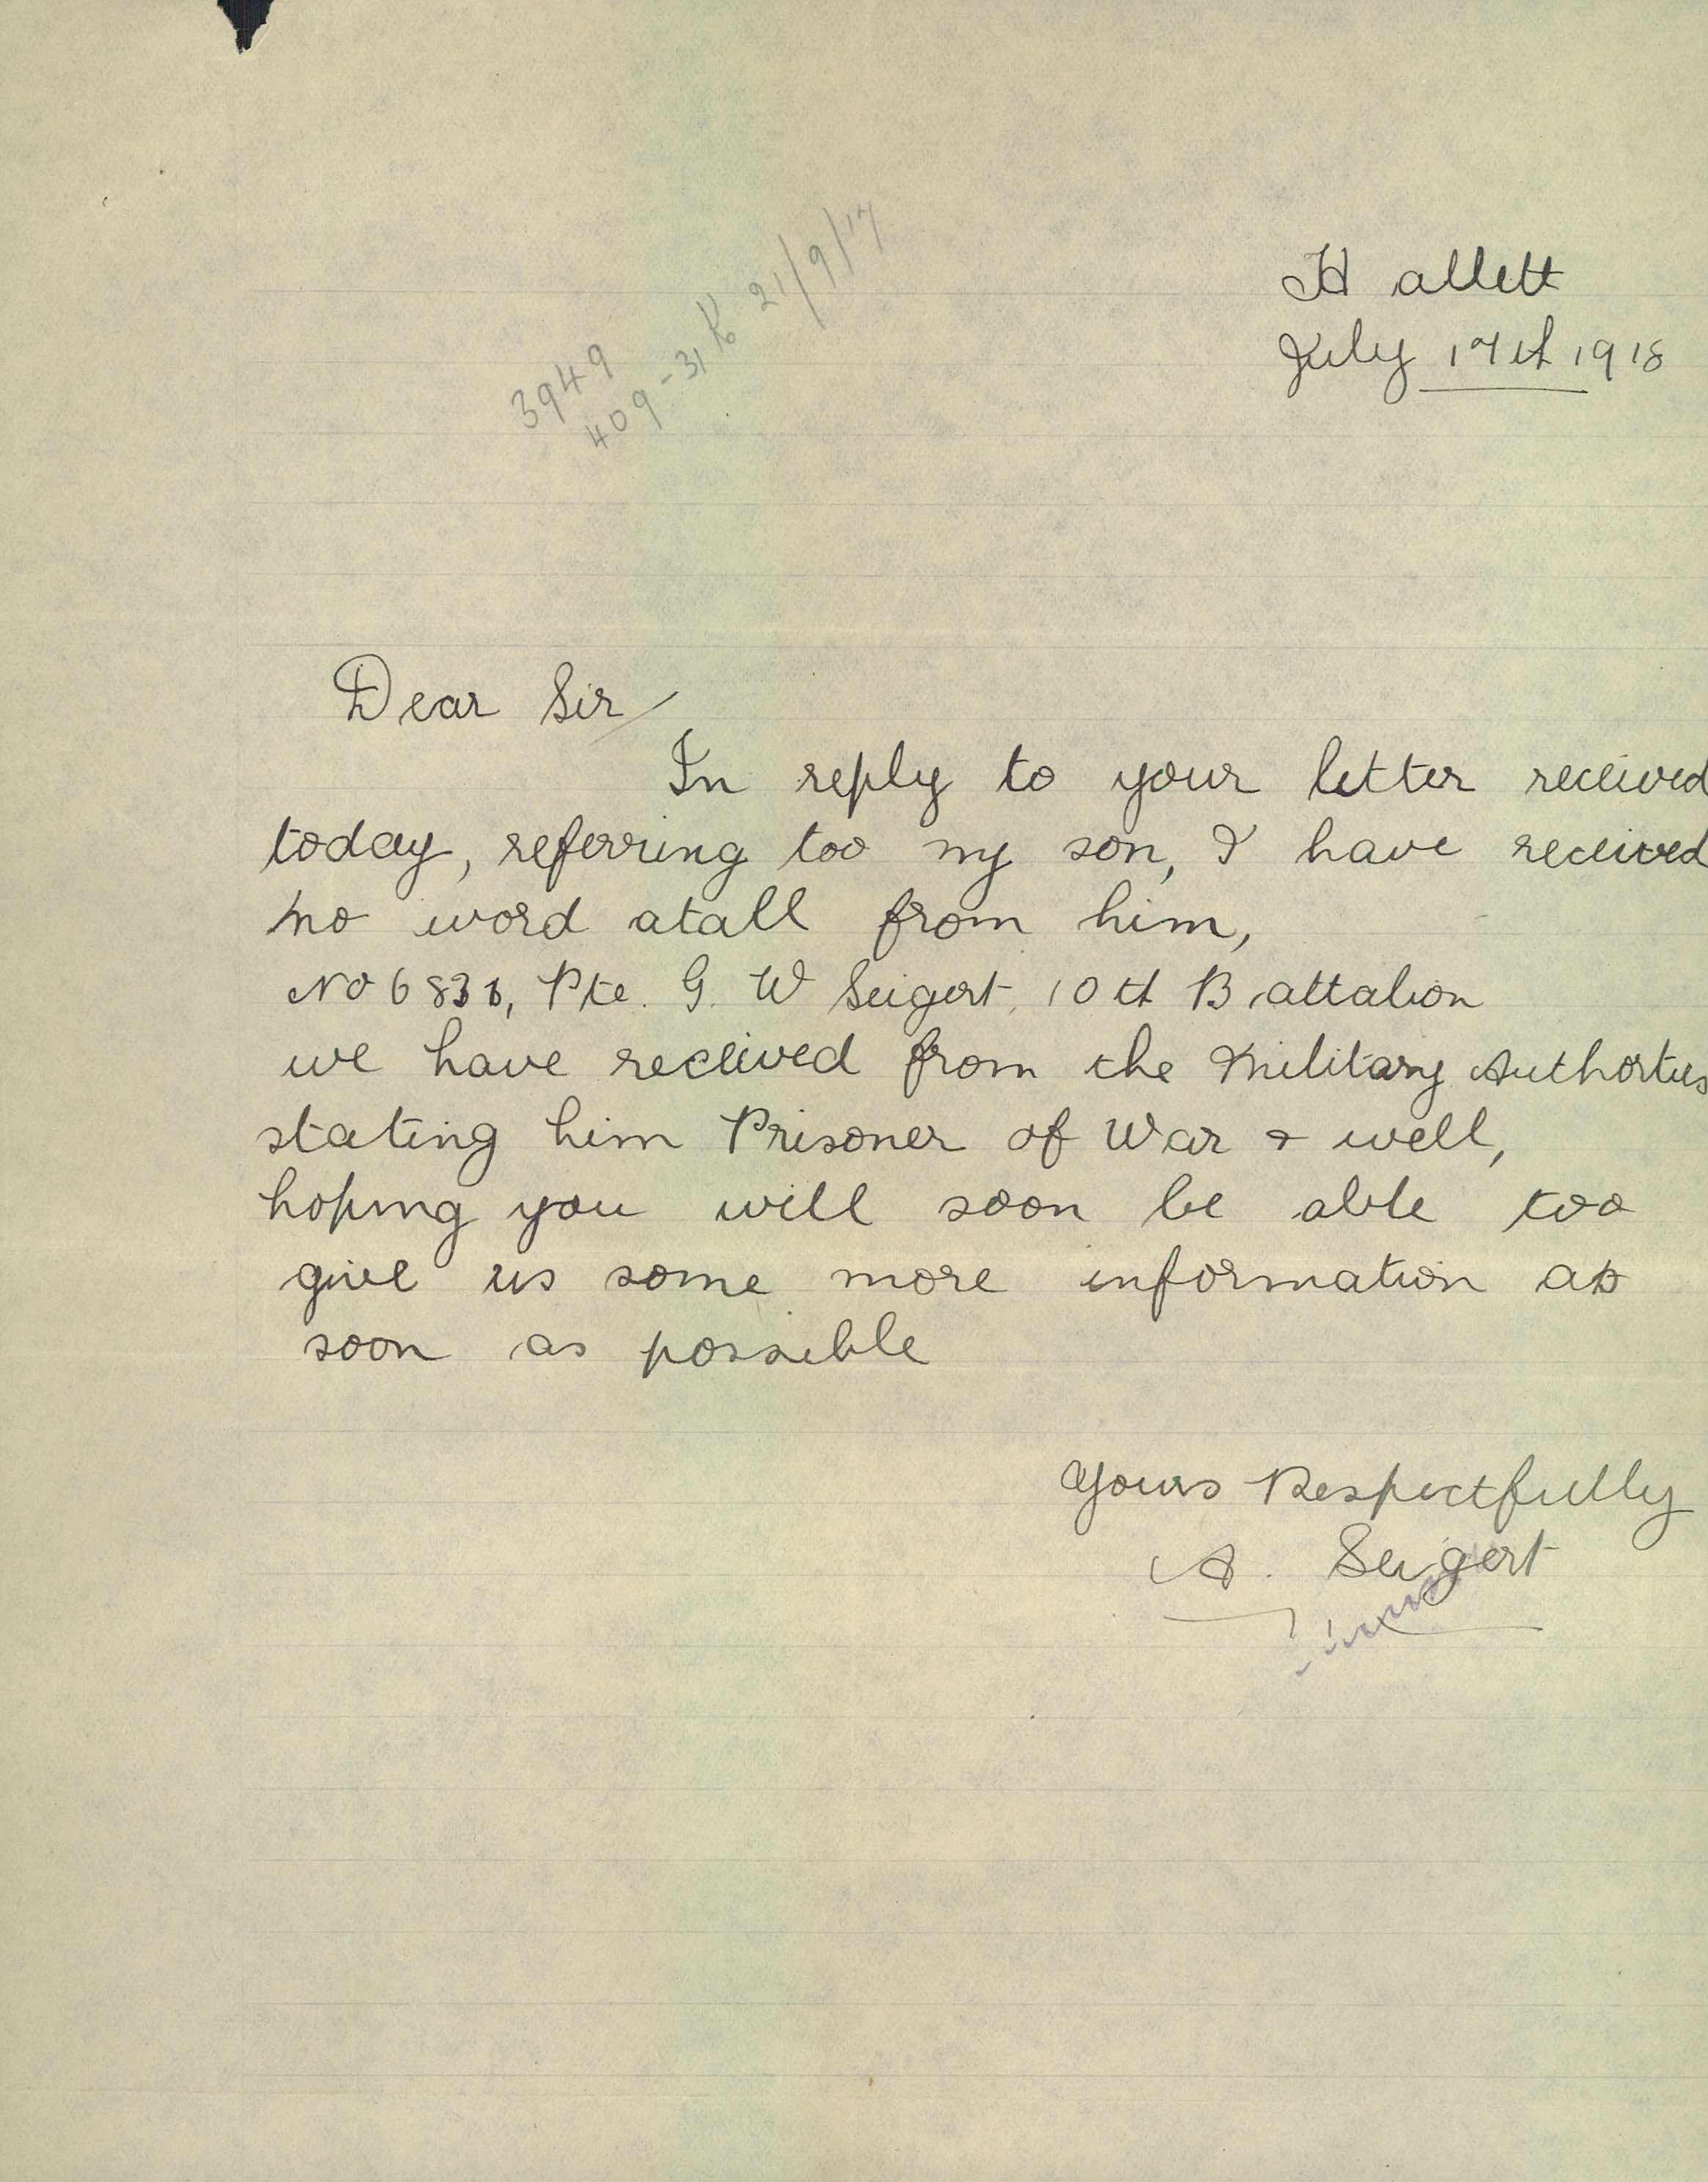 Hallett
July 17th 1918
3949
409-31 21/9/17
Dear Sir
In reply to your letter received
today, referring too my son, I have received
no word atall from him,
No Pte. G. W Seigert, 10th Battalion
we have received from the Military Authorties
stating him Prisoner of War & well,
hoping you will soon be able too
give us some more information as
soon as possible
Yours Respectfully
A. Seigert